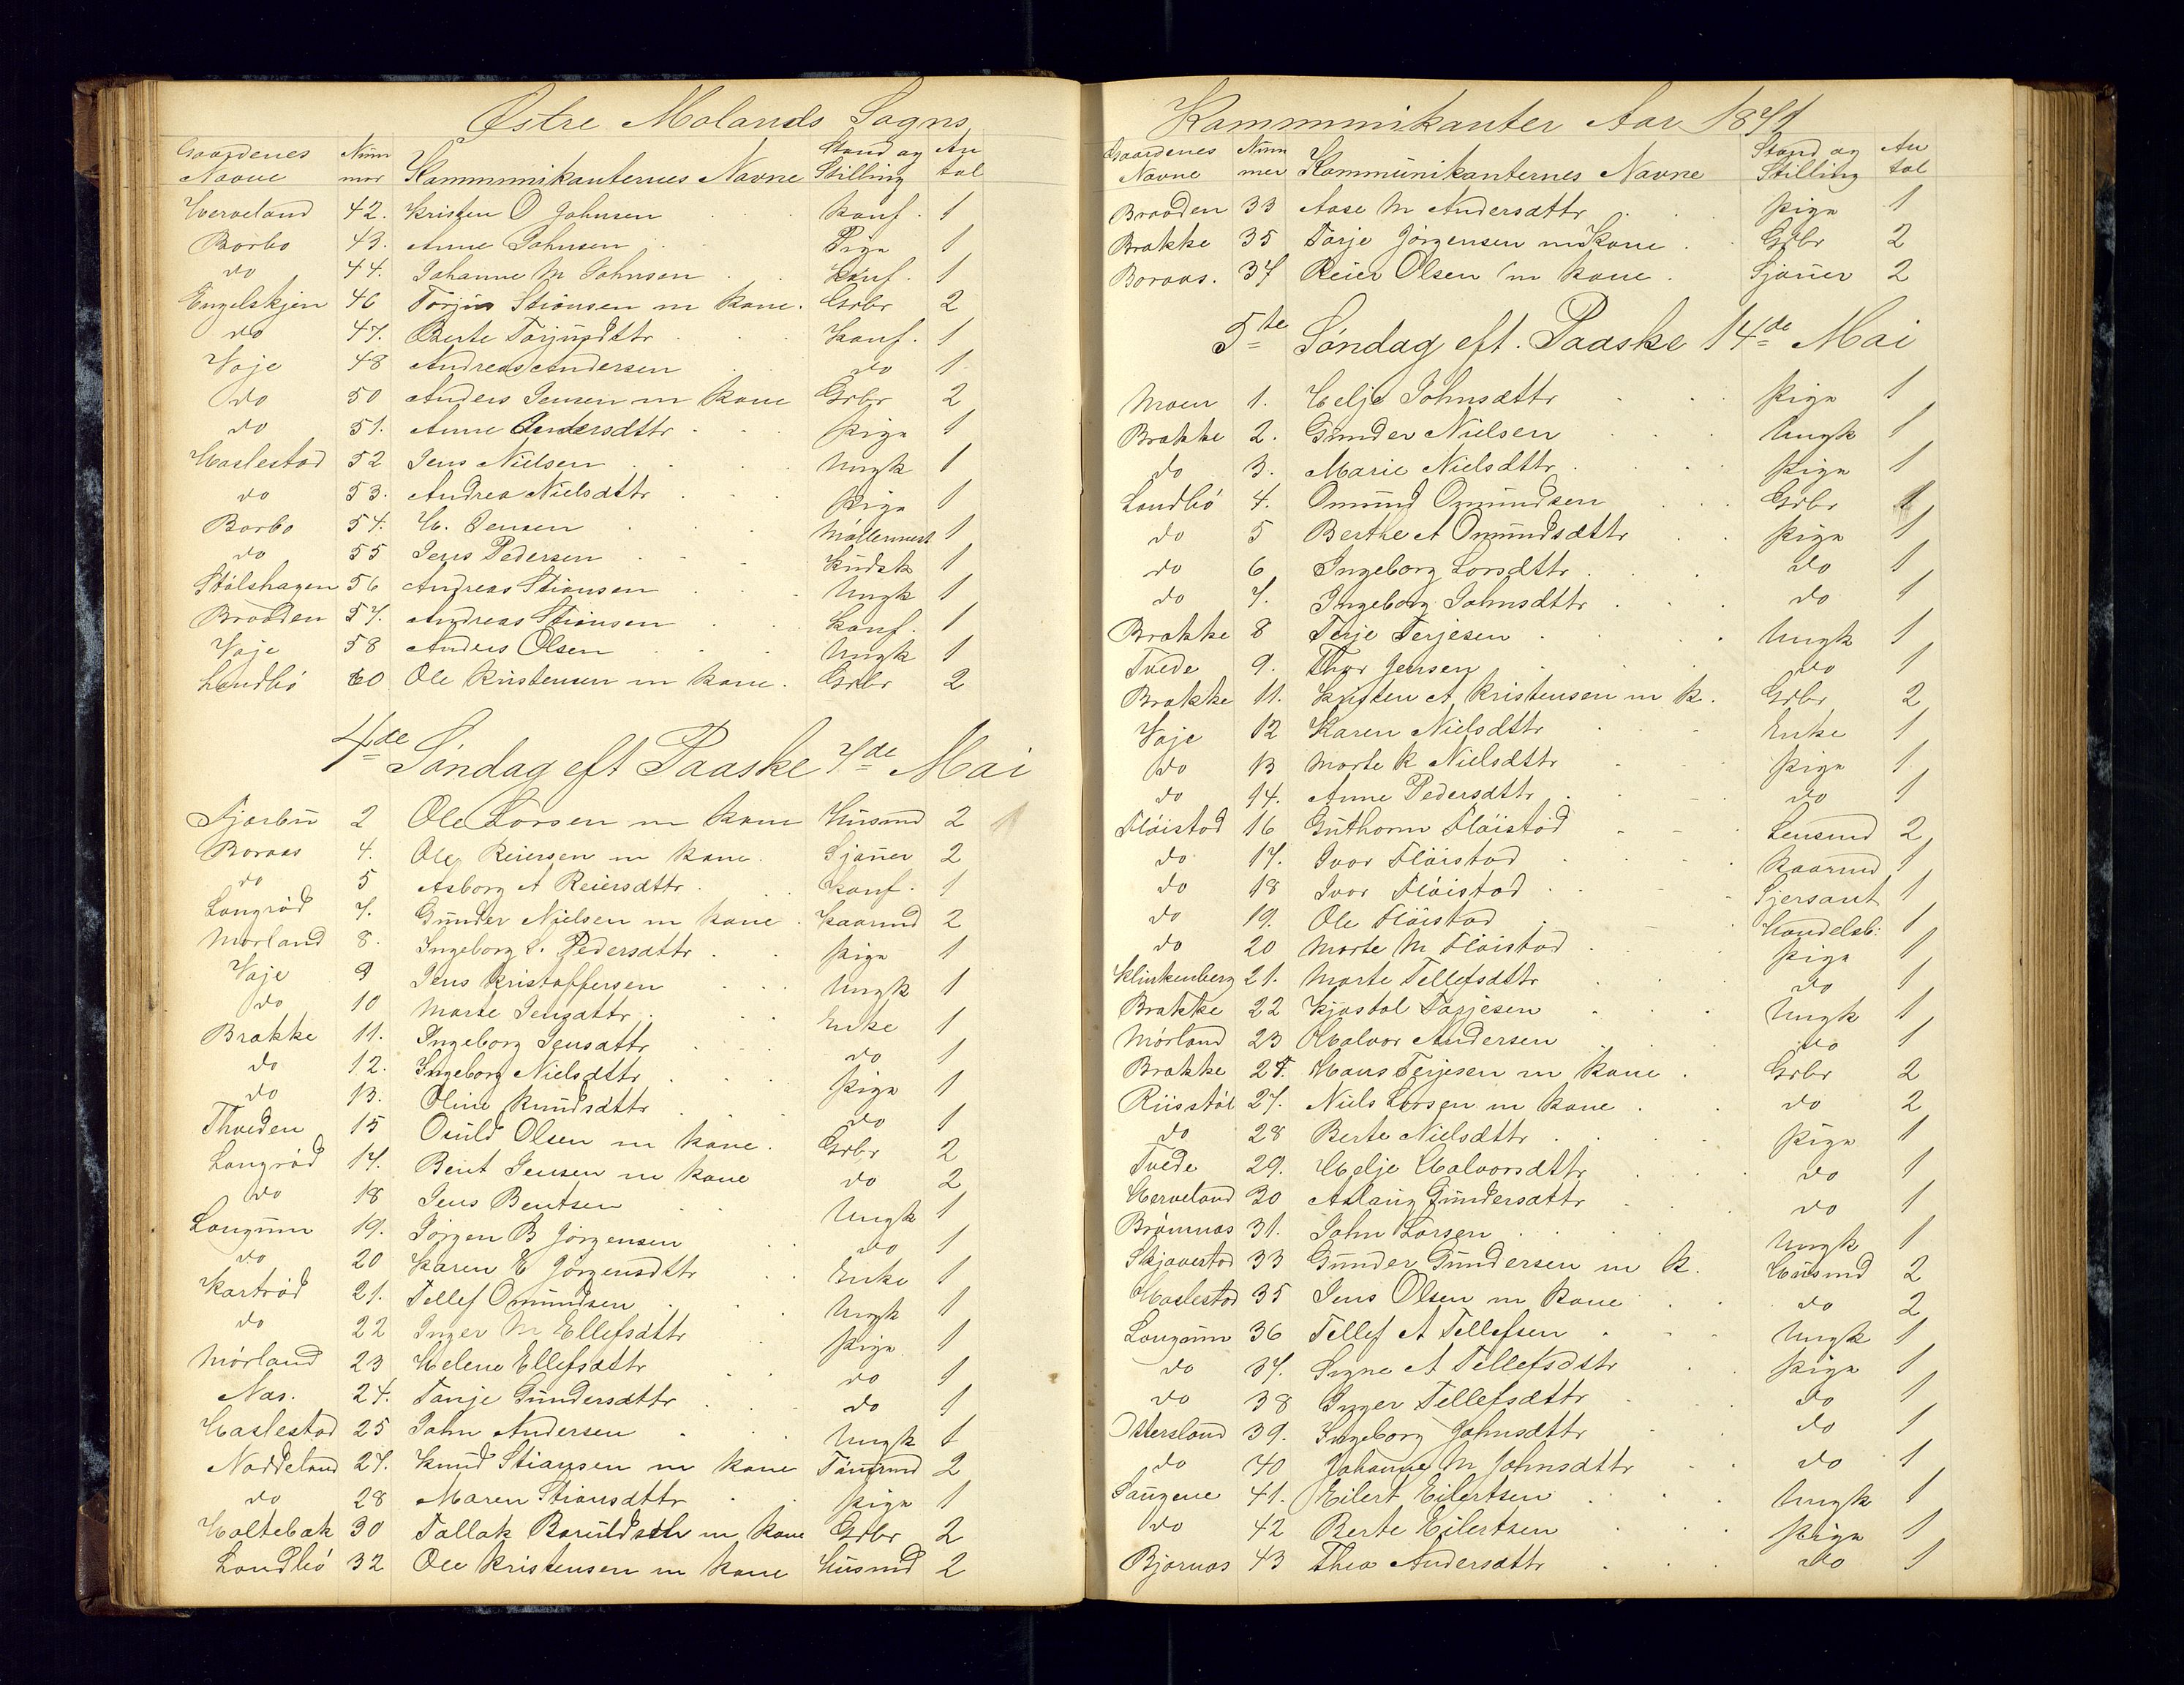 Østre Molands Sogns
Gaardenes Navne Num mer Kommunikanternes Navne Stand og Stilling An tal
Herveland 42. Kristen O Johnsen Konf. 1
Borbo 43. Anne Johnsen Pige 1
do 44. Johanne M Johnsen Konf. 1
Engelskjen 46 Torjus Stiansen m Kone. Grbr 2
do 47. Berte Torjusdttr Konf. 1
Vaje 48 Andreas Andersen do 1
do 50 Anders Jensen m Kone Grbr 2
do 51. Anne Andersdttr pige 1
Haslestad 52 Jens Nielsen Ungk 1
do 53. Andrea Nielsdttr pige 1
Borbo 54. H. Jensen Møllermest 1
do 55 Jens Pedersen Kudsk 1
Stølshagen 56 Andreas Stiansen Ungk 1
Braaden 57. Andreas Stiansen Konf. 1
Vaje 58 Anders Olsen Ungk 1
Landbö 60 Ole Kristensen m Kone. Grbr 2
4de Søndag eft Paaske 7de Mai
Fjærbu 2 Ole Larsen m Kone Husmd 2
Boraas 4. Ole Reiersen m Kone. Sjauer 2
do 5 Asborg A Reiersdttr. Konf. 1
Langröd 7. Gunder Nielsen m Kone. Kaarmd 2
Mørland 8. Ingeborg L. Pedersdttr. pige 1
Vaje 9 Jens Kristoffersen Ungk 1
do 10 Marte Jensdttr. Enke 1
Brække 11. Ingeborg Jensdttr do 1
do 12. Ingeborg Nielsdttr pige 1
do 13. Oline Knudsdttr do 1
Thveden 15 Osuld Olsen m Kone. Grbr 2
Langröd 17. Bent Jensen m Kone do 2
do 18 Jens Bentsen Ungk 1
Langum 19. Jørgen B Jørgensen do 1
do 20 Karen E Jørgensdttr Enke 1
Kartröd 21. Tellef Omundsen Ungk 1
do 22 Inger M Ellefsdttr pige 1
Mørland 23 Helene Ellefsdttr do 1
Næs. 24. Tanje Gundersdttr do 1
Haslestad 25 John Andersen Ungk 1
Nøddeland 27. Knud Stiansen m Kone Tømmd 2
do 28 Maren Stiansdttr pige 1
Holtebæk 30 Tallak m Kone Grbr 2
Landbö 32 Ole Kristensen m Kone Husmd 2
Kommunikanter Aar 1871
Gaardenes Navne Num mer Kommunikanternes Navne Stand og Stilling An tal
Braaden 33 Aase M Andersdttr pige 1
Brække 35 Tarje Jørgensen m Kone Grbr 2
Boraas. 37 Reier Olsen m Kone. Sjauer 2
5te Søndag eft. Paaske 14de Mai
Moen 1. Helje Johnsdttr pige 1
Brække 2. Gunder Nielsen Ungk 1
do 3. Marie Nielsdttr. pige 1
Landbö 4. Omund Omundsen Grbr 1
do 5 Berthe A Omundsdttr pige 1
do 6 Ingeborg Larsdttr. do 1
do 7. Ingeborg Johnsdttr do 1
Brække 8 Terje Terjesen Ungk 1
Tvede 9. Thor Jensen do 1
Brække 11. Kristen A Kristensen m K. Grbr 2
Vaje 12 Karen Nielsdttr Enke 1
do 13 Marte K Nielsdttr pige 1
do 14. Anne Pedersdttr do 1
Fløistad 16 Guthorm Fløistad Lensmd 2
do 17. Ivar Fløistad Kaarmd 1
do 18 Ivar Fløistad Sjersant 1
do 19. Ole Fløistad Handelsb: 1
do 20 Marte M Fløistad pige 1
Klinkenberg 21. Marte Tellefsdttr do 1
Brække 22 Kjøstol Tarjesen Ungk 1
Mørland 23 Halvor Andersen do 1
Brække 25. Hans Terjesen m Kone. Grbr 2
Riisstøl 27. Niels Larsen m Kone. do 2
do 28 Berte Nielsdttr. pige 1
Tvede 29. Helje Halvorsdttr do 1
Herveland 30 Aslaug Gundersdttr do 1
Brømnæs 31. John Larsen Ungk 1
Skjævestad 33 Gunder Gundersen m K. Husmd 2
Haslestad 35 Jens Olsen m Kone do 2
Langum 36 Tellef A Tellefsen Ungk 1
do 37. Signe A Tellefsdttr pige 1
do 38 Inger Tellefsdttr do 1
Ottersland 39. Ingeborg Johnsdttr do 1
do 40 Johanne M Johnsdttr do 1
Saugene 41. Eilert Eilertsen Ungk 1
do 42 Berte Eilertsen pige 1
Bjørnaas 43 Thea Andersdttr do 1